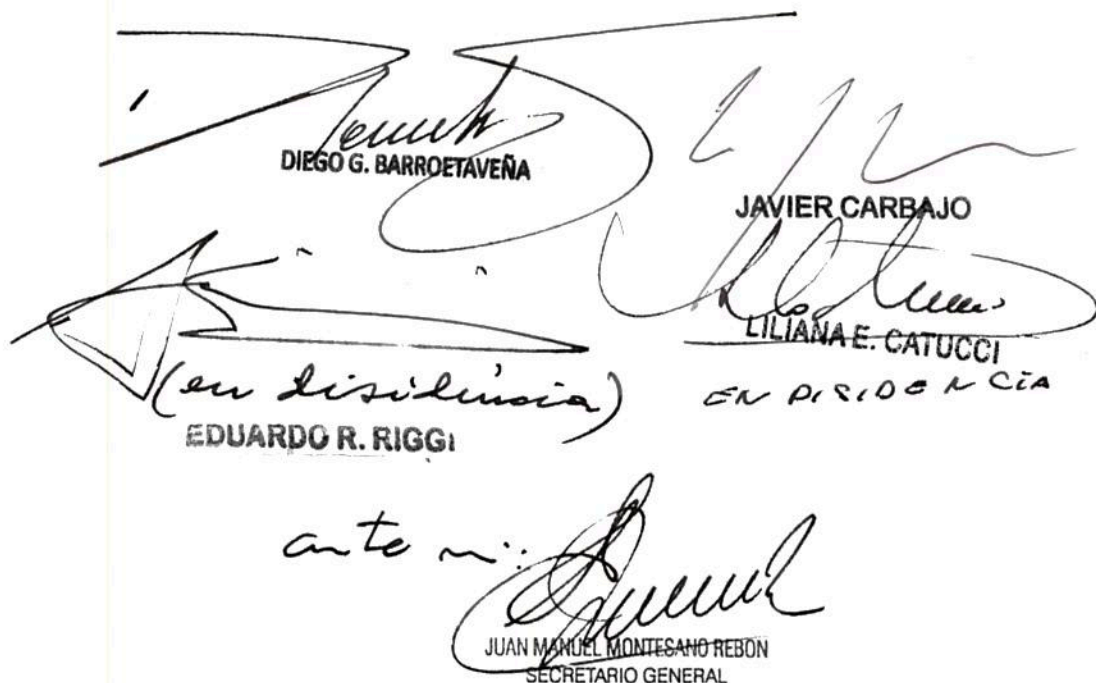 DIEGO G. BARROETAVEÑA
JAVIER CARBAJO
LILIANA E. CATUCCI
EN DISIDENCIA
(en disidencia)
EDUARDO R. RIGGI
ante mi:
JUAN MANUEL MONTESANO REBON
SECRETARIO GENERAL